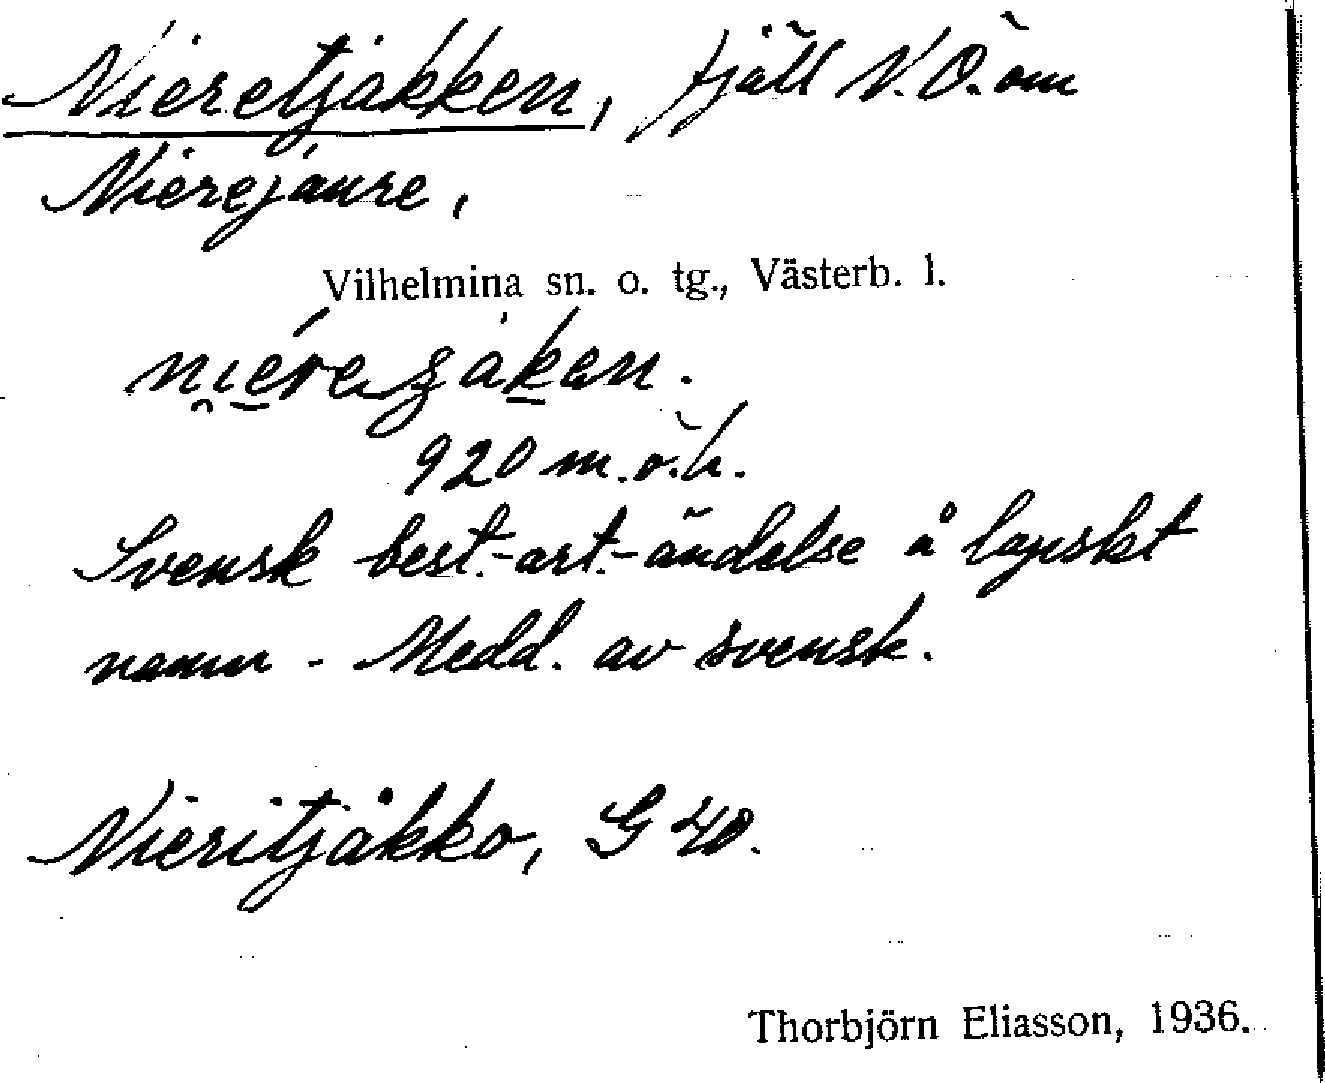 Nieretjakken, fjäll N.Ö. om
Nierejaure,
Vilhelmina sn. o. tg., Västerb. l.
920 m.ö.h.
Svensk best.-art.-ändelse å lapskt
namn - Medd. av svensk.
Nieritjåkko, G 40.
Thorbjörn Eliasson, 1936.